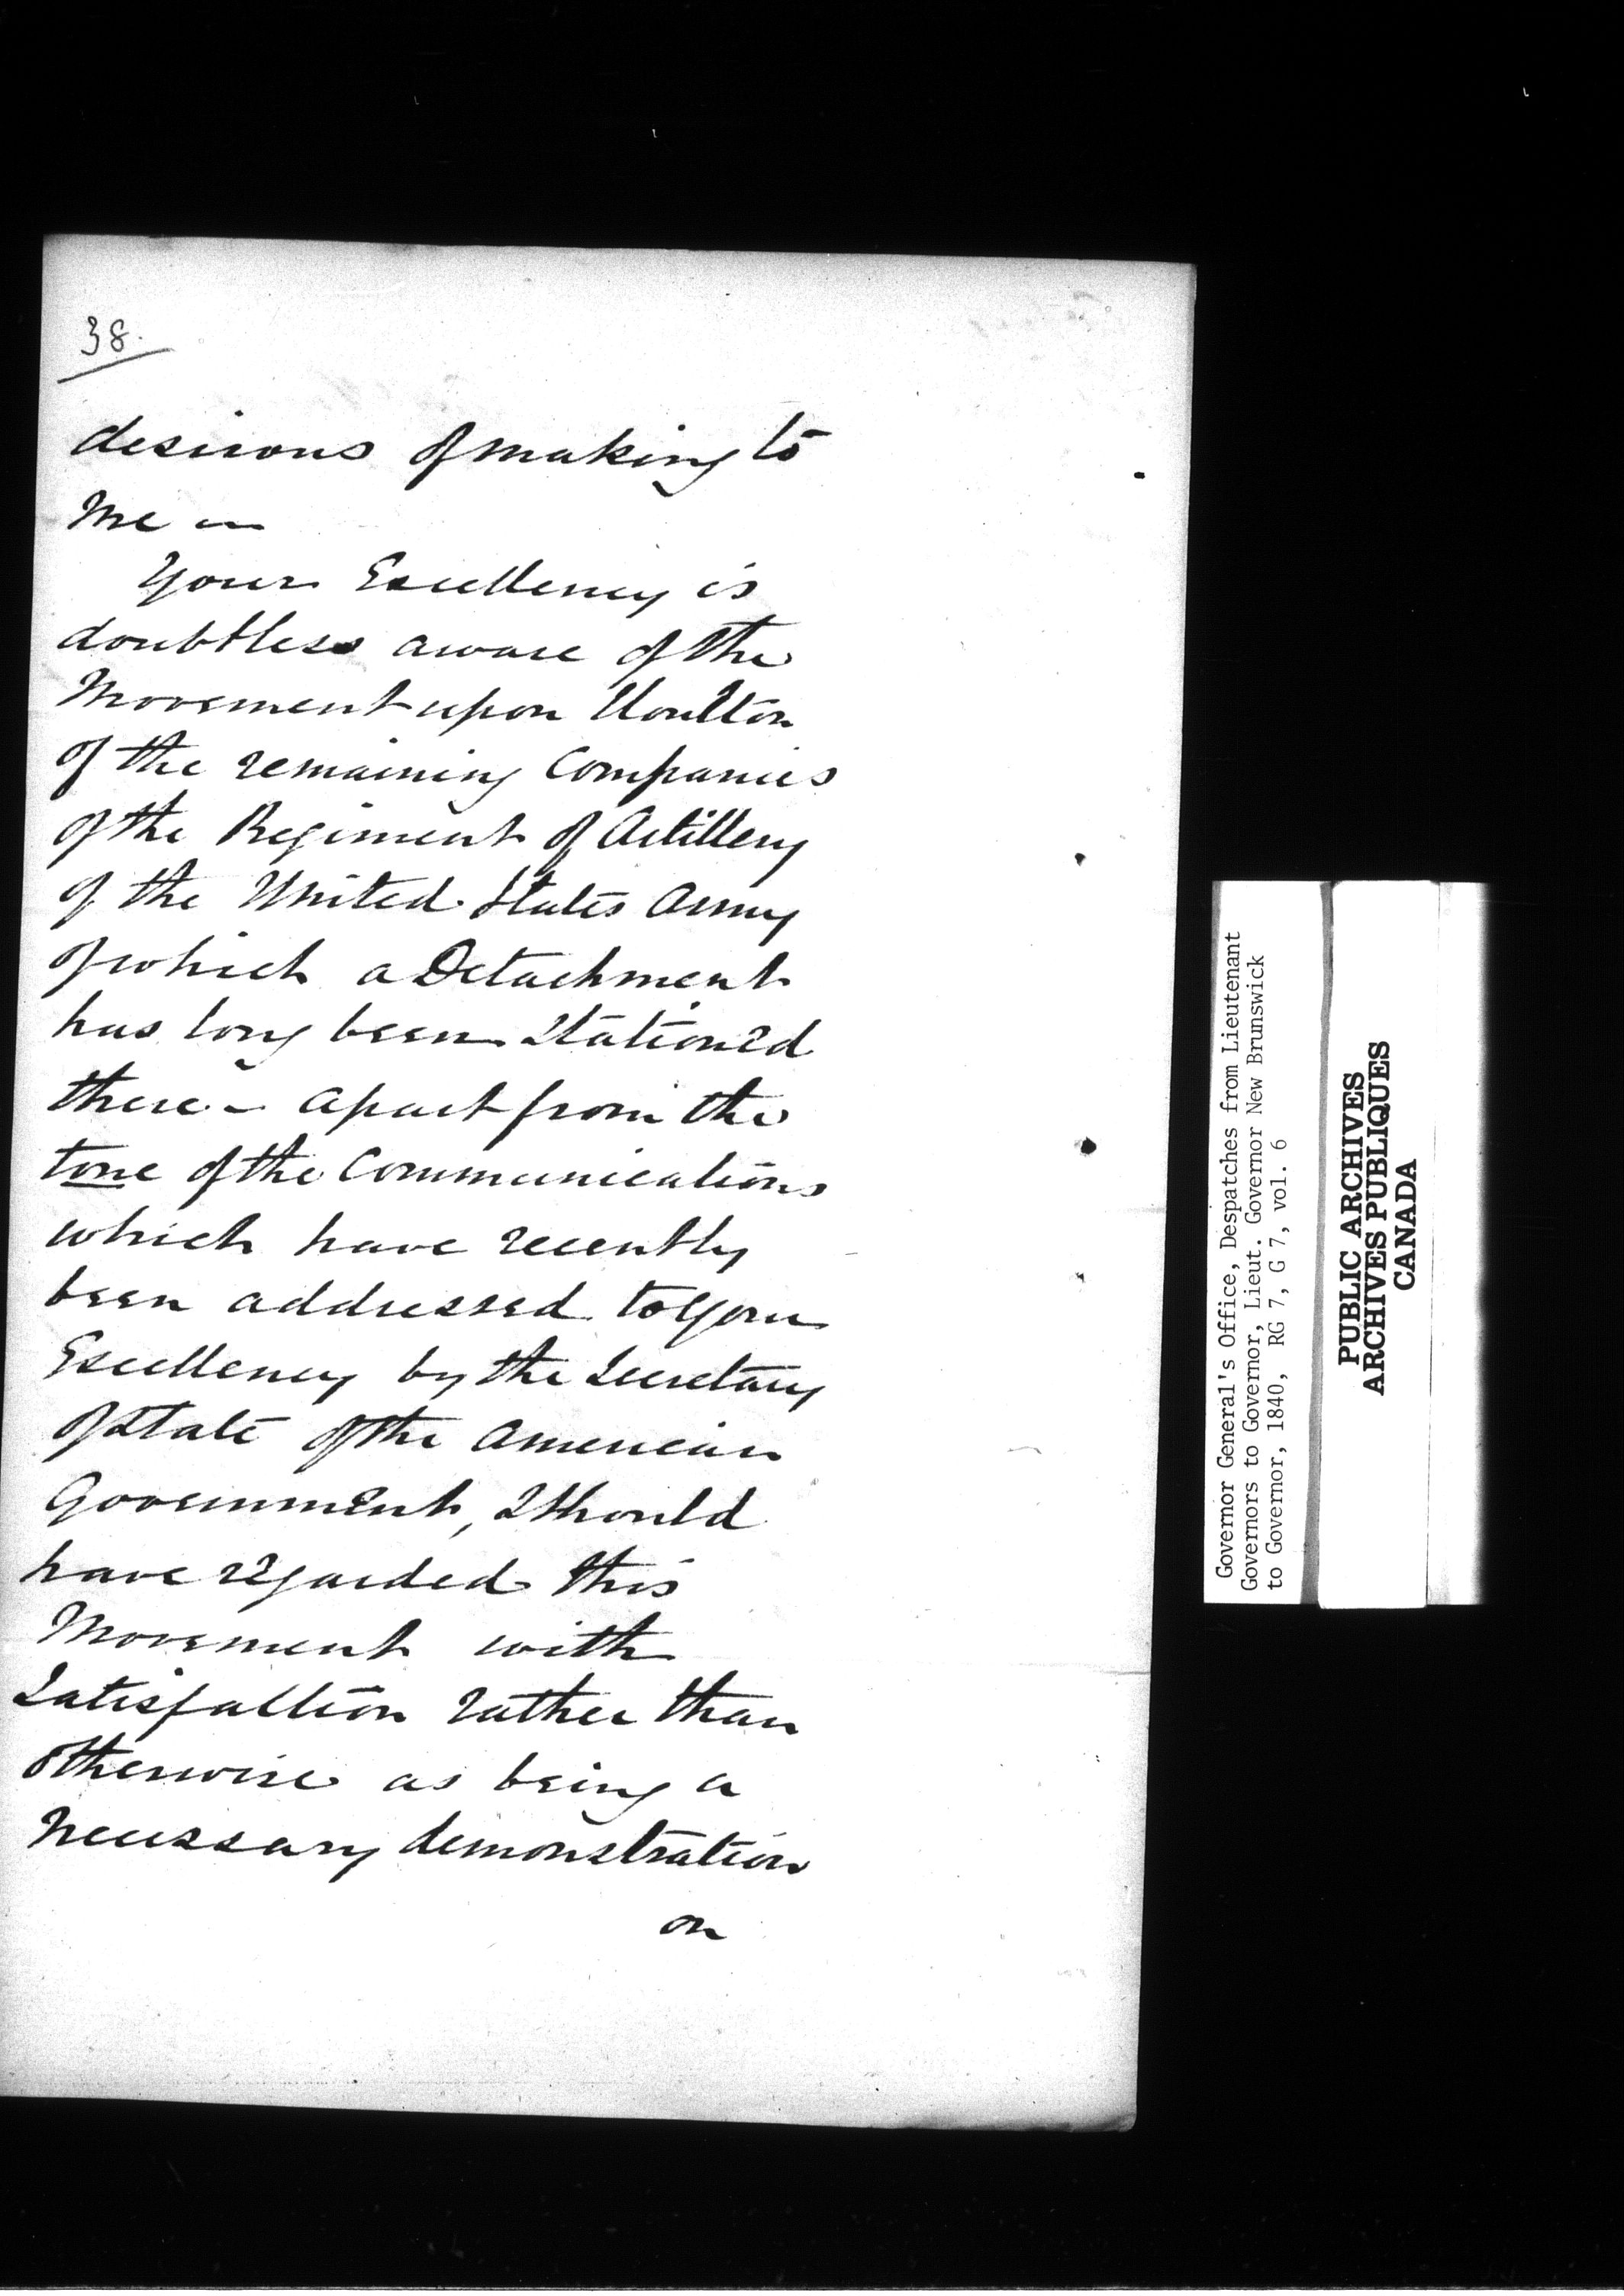 38.
desirous of making to
me —
Your Excellency is
doubtless aware of the
Movement upon Houlton
of the remaining Companies
of the Regiment of Artillery
of the United States Army
of which a Detachment
has long been stationed
there – apart from the
tone of the Communications
which have recently
been addressed to Your
Excellency by the Secretary
of State of the American
Government, I should
have regarded this
Movement with
Satisfaction rather than
otherwise as being a
necessary demonstration
on
Governor General's Office, Despatches from Lieutenant
Governors to Governor, Lieut. Governor New Brunswick
to Governor, 1840, RG 7, G 7, vol. 6
PUBLIC ARCHIVES
ARCHIVES PUBLIQUES
CANADA